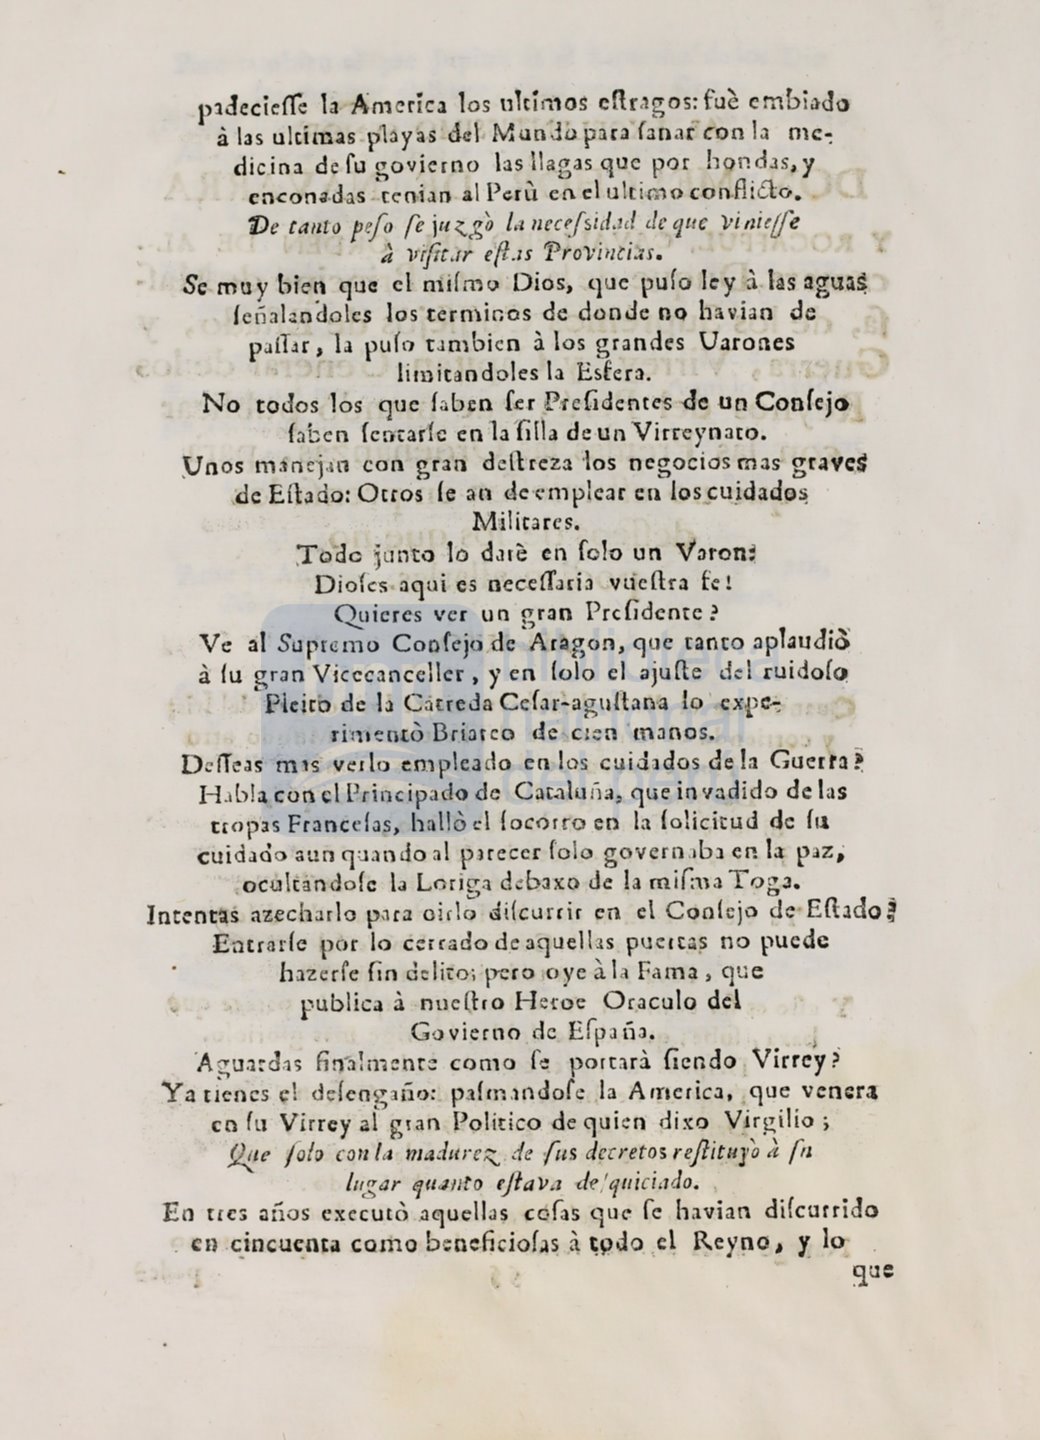 padeciesse la America los ultimos estragos: fuè embiado
à las ultimas playas del Mundo para sanar con la me-
dicina de su govierno las llagas que por hondas, y
enconadas tenian al Perù en el ultimo conflicto.
De tanto peso se juzgò la necessidad de que viniesse
à visitar estas Provincias.
Se muy bien que el mismo Dios, que puso ley à las aguas
señalandoles los terminos de donde no havian de
passar, la puso tambien à los grandes Uarones
limitandoles la Esfera.
No todos los que saben ser Presidentes de un Consejo
saben sentarse en la silla de un Virreynato.
Unos manejan con gran destreza los negocios mas graves
de Estado: Otros se an de emplear en los cuidados
Militares.
Todo junto lo darè en solo un Varon:
Dioses aqui es necessaria vuestra fe!
Quieres ver un gran Presidente?
Ve al Supremo Consejo de Aragon, que tanto aplaudiò
à su gran Vicecanceller, y en solo el ajuste del ruidoso
Pleito de la Catreda Cesar-agustana lo expe-
rimentò Briareo de cien manos.
Desseas mas verlo empleado en los cuidados de la Guerra?
Habla con el Principado de Cataluña, que invadido de las
tropas Francesas, hallò el socorro en la solicitud de su
cuidado aun quando al parecer solo governaba en la paz,
ocultandose la Loriga debaxo de la misma Toga.
Intentas azecharlo para oirlo discurrir en el Consejo de Estado?
Entrarse por lo cerrado de aquellas puertas no puede
hazerse sin delito; pero oye à la Fama, que
publica à nuestro Heroe Oraculo del
Govierno de España.
Aguardas finalmente como se portarà siendo Virrey?
Ya tienes el desengaño: pasmandose la America, que venera
en su Virrey al gran Politico de quien dixo Virgilio;
Que solo con la madurez de sus decretos restituyò à su
lugar quanto estava desquiciado.
En tres años executò aquellas cosas que se havian discurrido
en cincuenta como beneficiosas à todo el Reyno, y lo
que